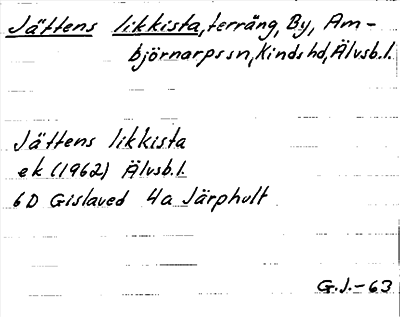 Jättens likkista, terräng, By, Am-
björnarps sn, Kinds hd, Älvsb.l.
Jättens likkista
ek (1962) Älvsb.l.
6D Gislaved 4a Järphult
G.J.-63